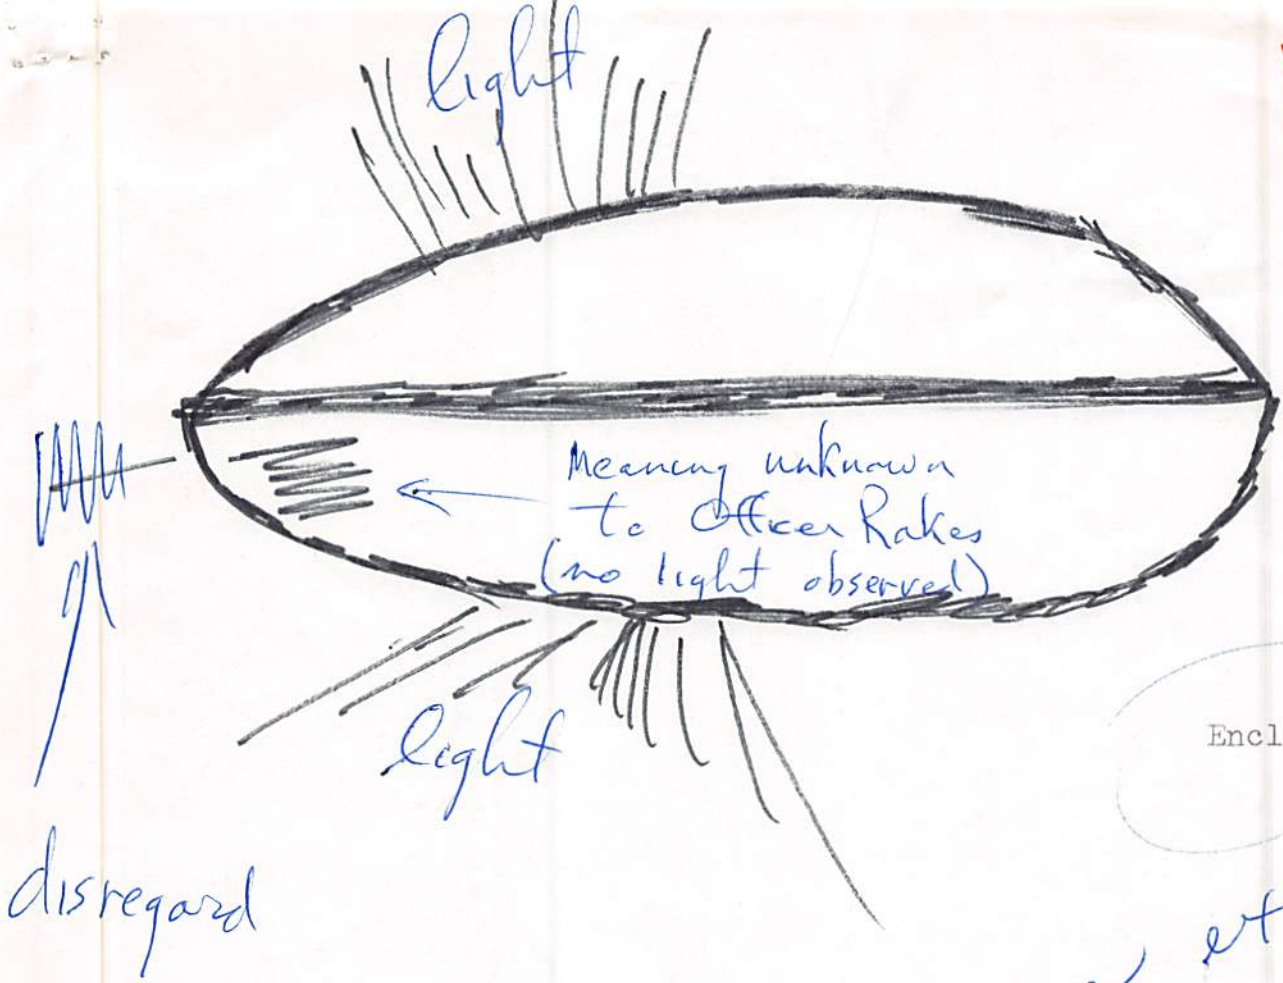 light
Meaning unknown
to Officer Rakes
(no light observed)
light
Encl
disregard